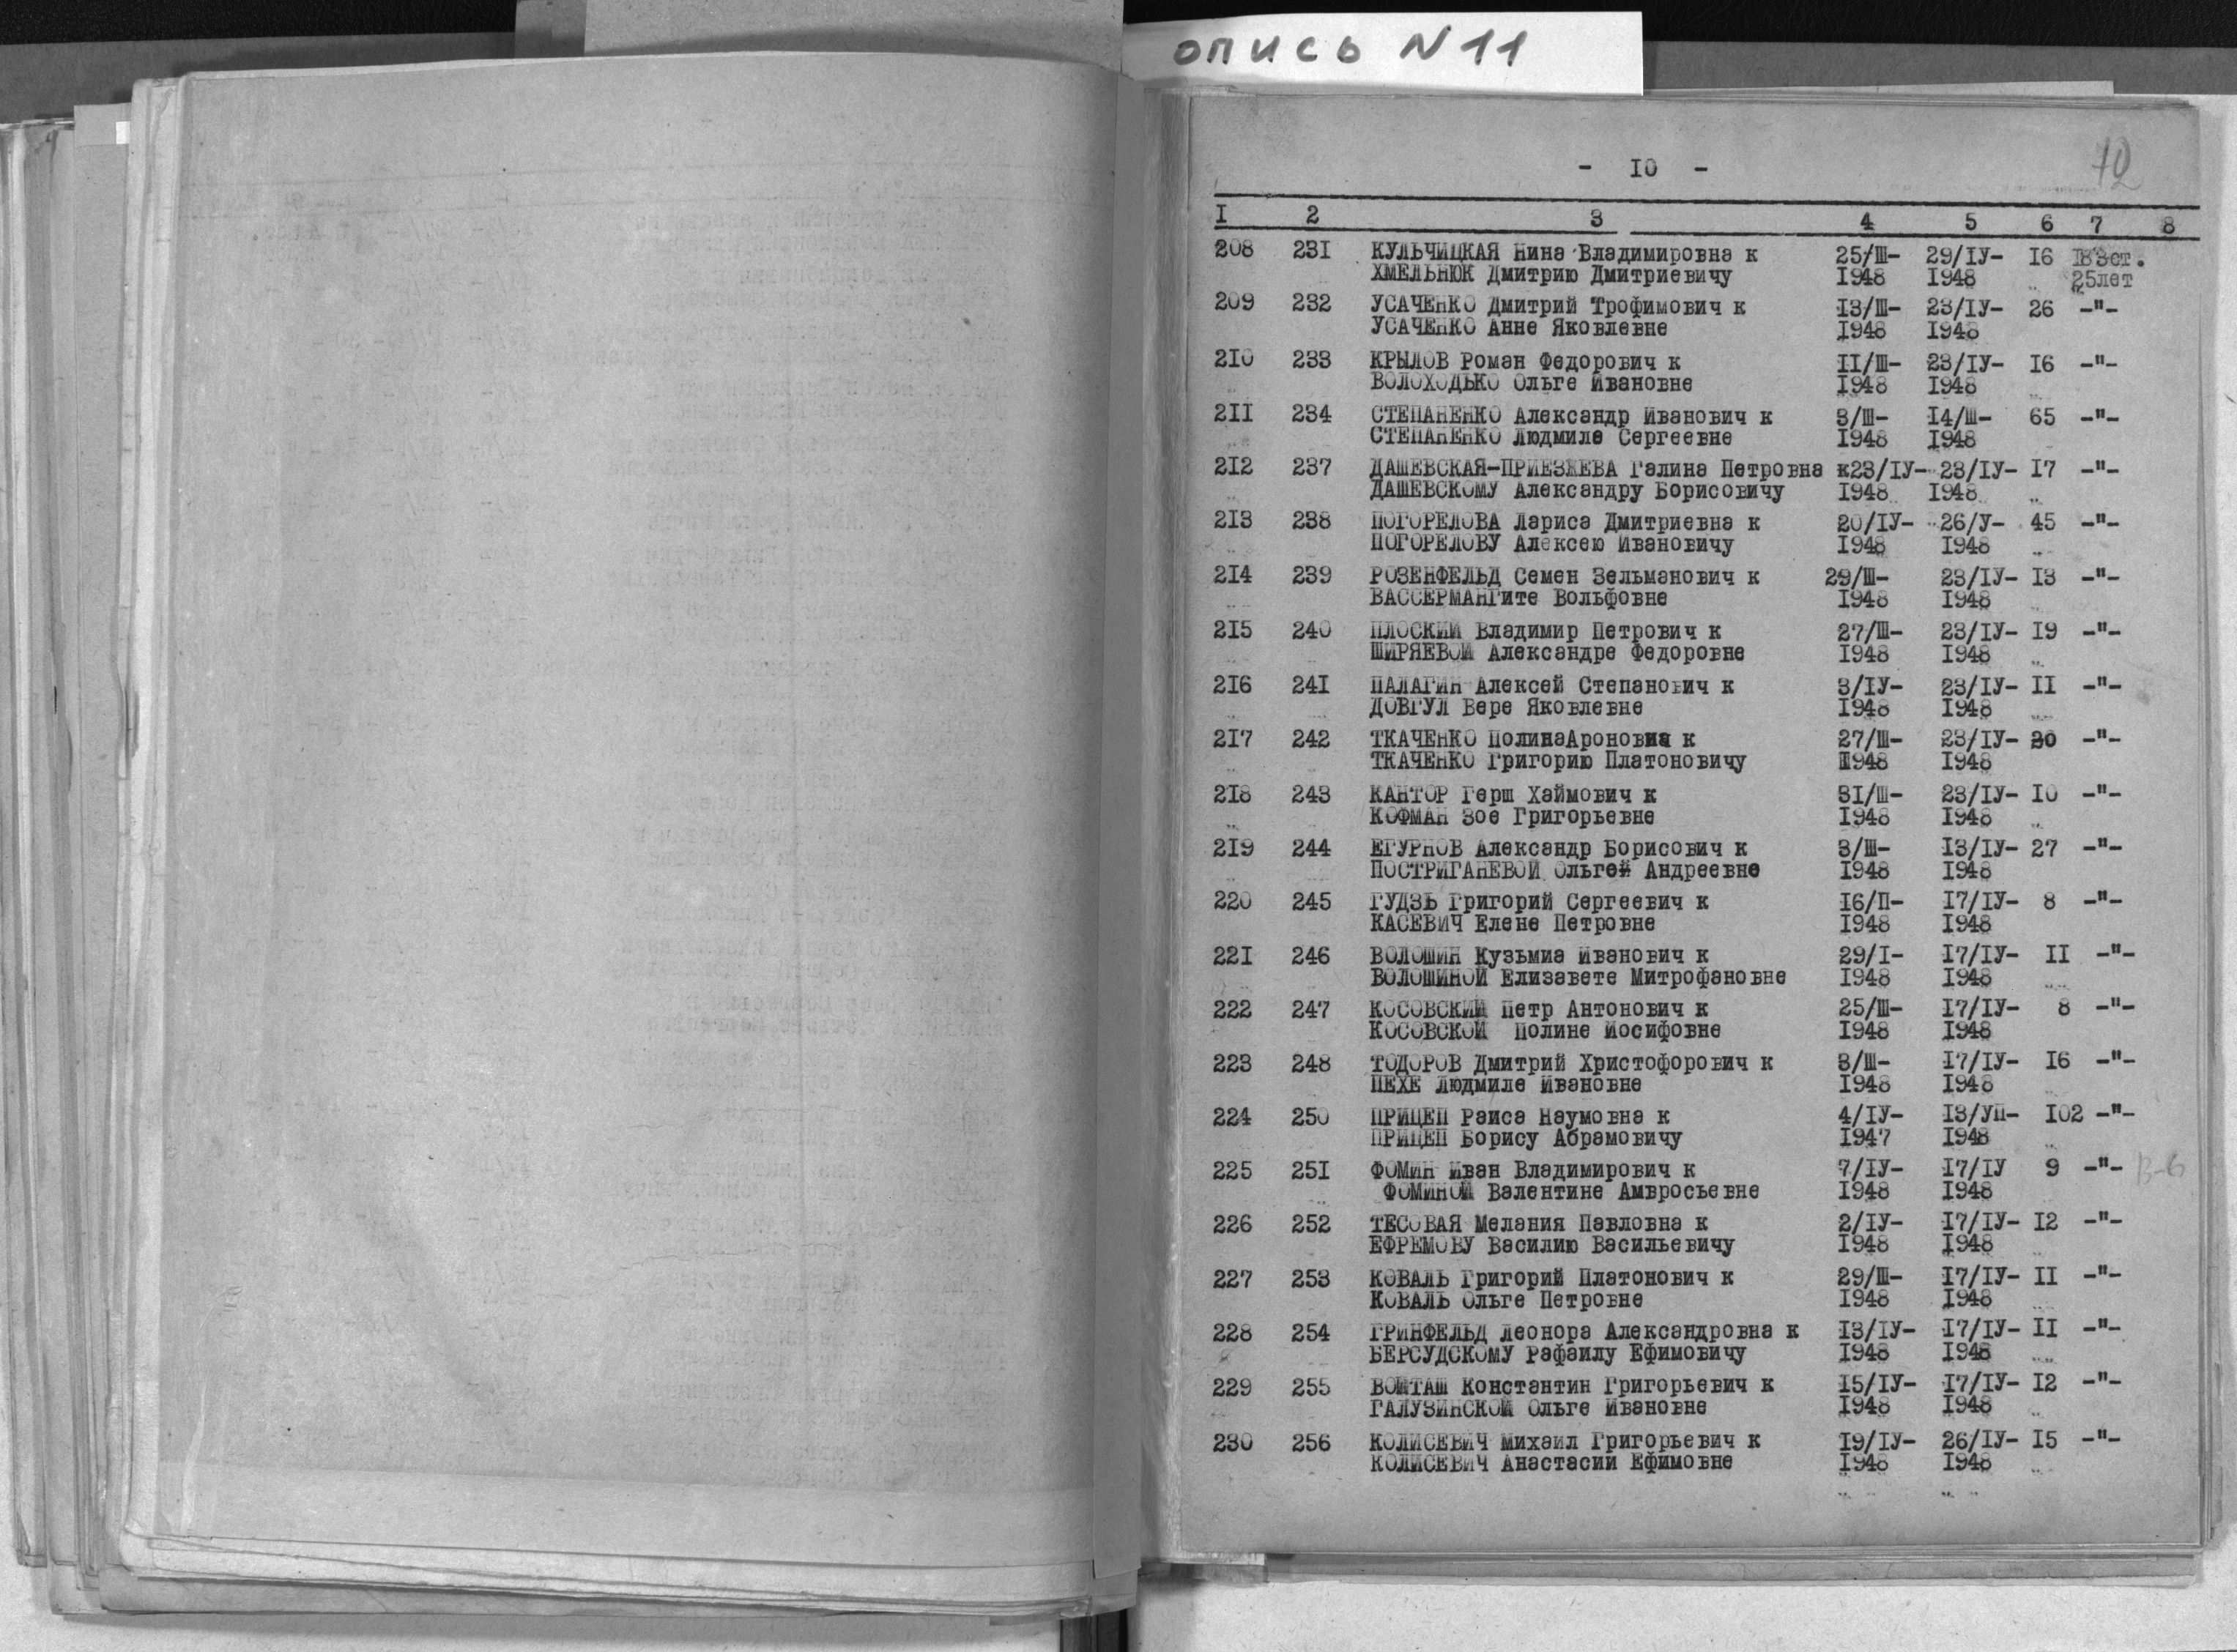 опись N 11
72
- 10 -
1 2 3 4 5 6 7 8
208 231 КУЛЬЧИЦКАЯ Нина Владимировна к 25/Ш- 29/IУ- 16 183ст.
ХМЕЛЬНЮК Дмитрию Дмитриевичу 1948 1948 25лет
209 232 УСАЧЕНКО Дмитрий Трофимович к 13/Ш- 23/IУ- 26 -"-
УСАЧЕНКО Анне Яковлевне 1948 1948
210 233 КРЫЛОВ Роман Федорович к 11/Ш- 23/IУ- 16 -"-
ВОЛОХОДЬКО Ольге Ивановне 1948 1948
211 234 СТЕПАНЕНКО Александр Иванович к 3/Ш- 14/Ш- 65 -"-
СТЕПАНЕНКО Людмиле Сергеевне 1948 1948
212 237 ДАШЕВСКАЯ-ПРИЕЗЖЕВА Галина Петровна к 23/IУ- 23/IУ- 17 -"-
ДАШЕВСКОМУ Александру Борисовичу 1948 1948
213 238 ПОГОРЕЛОВА Лариса Дмитриевна к 20/IУ- 26/У- 45 -"-
ПОГОРЕЛОВУ Алексею Ивановичу 1948 1948
214 239 РОЗЕНФЕЛЬД Семен Зельманович к 29/Ш- 23/IУ- 13 -"-
ВАССЕРМАНГите Вольфовне 1948 1948
215 240 ПЛОСКИЙ Владимир Петрович к 27/Ш- 23/IУ- 19 -"-
ШИРЯЕВОЙ Александре Федоровне 1948 1948
216 241 ПАЛАГИН Алексей Степанович к 3/IУ- 23/IУ- 11 -"-
ДОВГУЛ Вере Яковлевне 1948 1948
217 242 ТКАЧЕНКО ПолинаАроновна к 27/Ш- 23/IУ- 30 -"-
ТКАЧЕНКО Григорию Платоновичу 1948 1948
218 243 КАНТОР Герш Хаймович к 31/Ш- 23/IУ- 10 -"-
КОФМАН Зое Григорьевне 1948 1948
219 244 ЕГУРНОВ Александр Борисович к 3/Ш- 13/IУ- 27 -"-
ПОСТРИГАНЕВОЙ Ольгей Андреевне 1948 1948
220 245 ГУДЗЬ Григорий Сергеевич к 16/П- 17/IУ- 8 -"-
КАСЕВИЧ Елене Петровне 1948 1948
221 246 ВОЛОШИН Кузьмиа Иванович к 29/I- 17/IУ- 11 -"-
ВОЛОШИНОЙ Елизавете Митрофановне 1948 1948
222 247 КОСОВСКИЙ Петр Антонович к 25/Ш- 17/IУ- 8 -"-
КОСОВСКОЙ Полине Иосифовне 1948 1948
223 248 ТОДОРОВ Дмитрий Христофорович к 3/Ш- 17/IУ- 16 -"-
ПЕХЕ Людмиле Ивановне 1948 1948
224 250 ПРИЦЕП Раиса Наумовна к 4/IУ- 13/УП- 102 -"-
ПРИЦЕП Борису Абрамовичу 1947 1948
225 251 ФОМИН Иван Владимирович к 7/IУ- 17/IУ 9 -"- В-6
ФОМИНОЙ Валентине Амвросьевне 1948 1948
226 252 ТЕСОВАЯ Мелания Павловна к 2/IУ- 17/IУ- 12 -"-
ЕФРЕМОВУ Василию Васильевичу 1948 1948
227 253 КОВАЛЬ Григорий Платонович к 29/Ш- 17/IУ- 11 -"-
КОВАЛЬ Ольге Петровне 1948 1948
228 254 ГРИНФЕЛЬД Леонора Александровна к 13/IУ- 17/IУ- 11 -"-
БЕРСУДСКОМУ Рафаилу Ефимовичу 1948 1948
229 255 ВОШТАШ Константин Григорьевич к 15/IУ- 17/IУ- 12 -"-
ГАЛУЗИНСКОЙ Ольге Ивановне 1948 1948
230 256 КОЛИСЕВИЧ Михаил Григорьевич к 19/IУ- 26/IУ- 15 -"-
КОЛИСЕВИЧ Анастасии Ефимовне 1948 1948